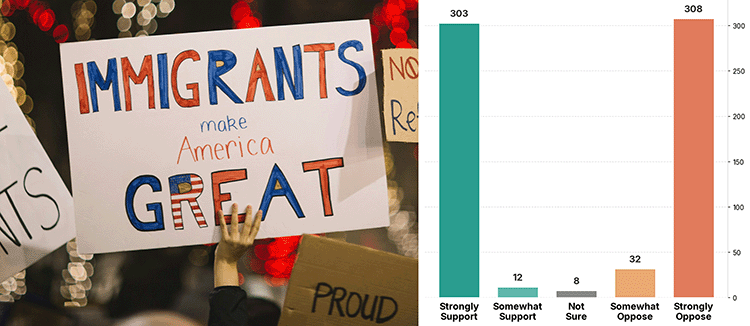 IMMIGRANTS
make
America
GREAT
NO
Re
NTS
PROUD
303
12
8
32
308
300
250
200
150
100
50
0
Strongly
Support
Somewhat
Support
Not
Sure
Somewhat
Oppose
Strongly
Oppose